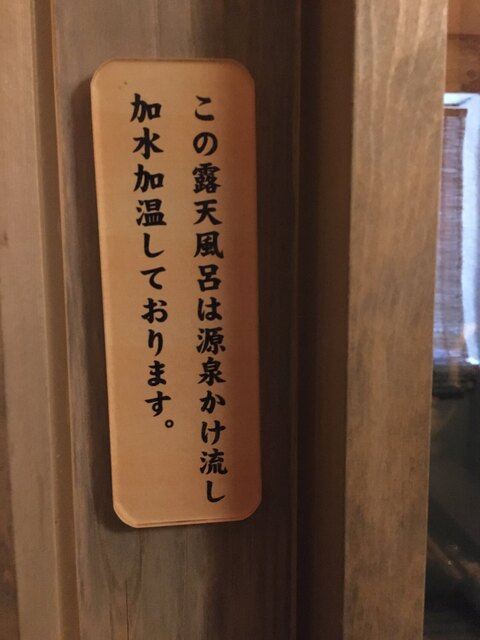 この露天風呂は源泉かけ流し
加水加温しております。